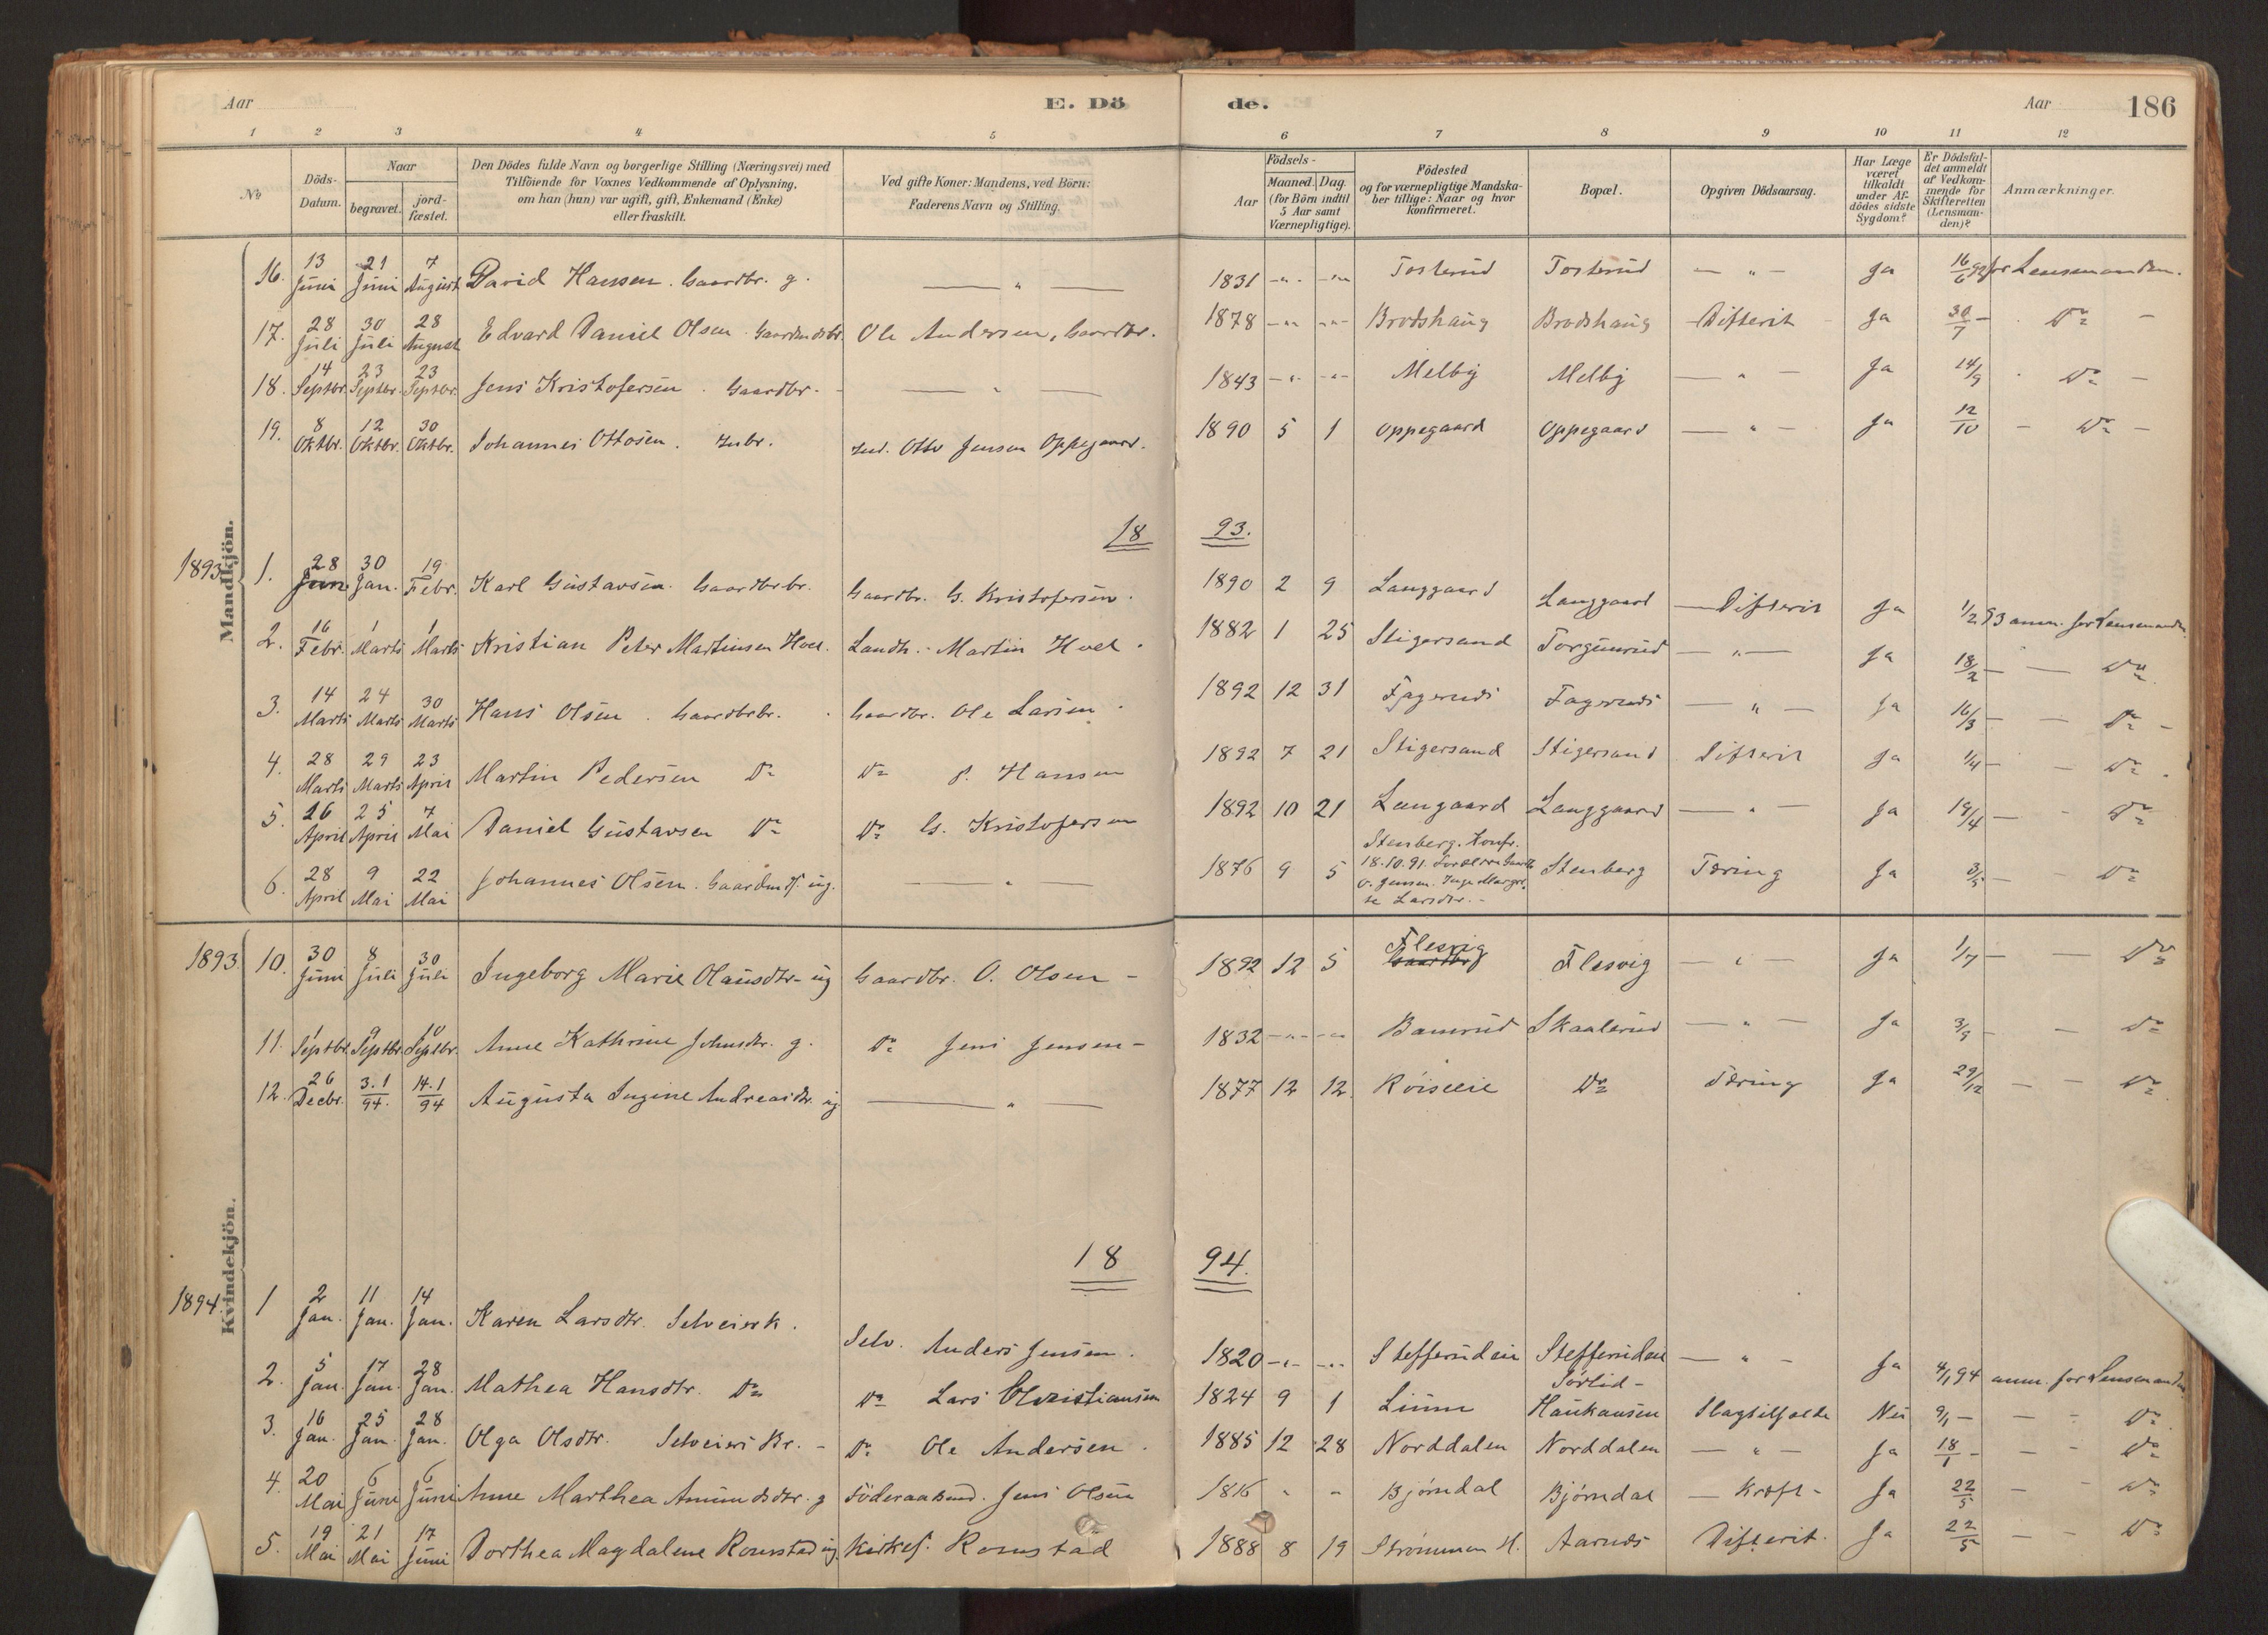 Aar E. Dö de. Aar 186
1 2 3 4 5 6 7 8 9 10 11 12
No Döds-Datum. Naar begravet. jord-fæstet. Den Dödes fulde Navn og borgerlige Stilling (Næringsvei) med Tilföiende for Voxnes Vedkommende af Oplysning, om han (hun) var ugift, gift, Enkemand (Enke) eller fraskilt. Ved gifte Koner: Mandens, ved Börn: Faderens Navn og Stilling. Födsels- Aar Maaned. Dag. (for Börn indtil 5 Aar samt Værnepligtige). Födested og for værnepligtige Mandskaber tillige: Naar og hvor konfirmeret. Bopæl. Opgiven Dödsaarsag. Har Læge været tilkaldt under Afdödes sidste Sygdom? Er Dödsfaldet anmeldt af Vedkommende for Skifteretten (Lensmanden)? Anmærkninger.
Mandkjön.
16. 13 Juni 21 Juni 7 August David Hansen. Gaardbr. g. — " — 1831 -"- -"- Tosterud Tosterud — " — Ja 16/6 92 for Lensmanden.
17. 28 Juli 30 Juli 28 August Edvard Daniel Olsen. Ole Andersen, Gaardbr. 1878 -"- -"- Brodshaug Brodshaug Difterit Ja 30/7 - Do -
18. 14 Septbr. 23 Septbr. 23 Septbr. Jens Kristofersen. Gaardbr. — " — 1843 -"- -"- Melby Melby — " — Ja 14/9 - Do -
19. 8 Oktbr. 12 Oktbr. 30 Oktbr. Johannes Ottosen. Inbr. Ind. Otto Jensen Oppegaard. 1890 5 1 Oppegaard Oppegaard — " — Ja 12/10 - Do -
18 93.
1893 1. 28 Jan. 30 Jan. 19 Febr. Karl Gustavsen. Gaardbrbr. Gaardbr. G. Kristofersen. 1890 2 9 Langgaard Langgaard — Difterit Ja 1/2 93 anm. for Lensmanden
2. 16 Febr. 1 Marts 1 Marts Kristian Peter Martinsen Hoel. Landh. Martin Hoel. 1882 1 25 Stigersand Torgunrud — " — Ja 18/2 - — Do
3. 14 Marts 24 Marts 30 Marts Hans Olsen. Gaardbrbr. Gaardbr. Ole Larsen. 1892 12 31 Fageruds Fageruds — " — Ja 16/3 - - Do -
4. 28 Marts 29 Marts 23 April Martin Pedersen Do Do P. Hansen 1892 7 21 Stigersand Stigersand Difterit Ja 1/4 - - Do
5. 26 April 25 April 7 Mai Daniel Gustavsen Do Do G. Kristofersen 1892 10 21 Langaard Langgaard — " — Ja 19/4 - - Do
6. 28 April 9 Mai 22 Mai Johannes Olsen. ug. — " — 1876 9 5 Stenberg. Konfr. 18.10.91. O. Jensen. Inge Margrete Larsdtr. Stenberg Tæring Ja 3/5 - Do
Kvindekjön.
1893. 10. 30 Juni 8 Juli 30 Juli Ingeborg Marie Olausdtr. ug Gaardbr. O. Olsen - 1892 12 5 Flesvig Flesvig — " — Ja 1/7 - — Do
11. 1 Septbr. 9 Septbr. 10 Septbr. Anne Kathrine Johnsdtr. g. Do Jens Jensen - 1832 -"- -"- Bamrud Skaalerud — " — Ja 3/9 - - Do
12. 26 Decbr. 3.1 94. 14.1 94 Augusta Ingine Andreasdtr. ug — " — 1877 12 12. Röiseeie Do Tæring Ja 29/12 - - Do
18 94.
1894. 1 2 Jan. 11 Jan. 14 Jan. Karen Larsdtr. Selveierk. Selv. Anders Jensen. 1820 -"- -"- Stefferudeie Stefferudeie — " - Ja 4/1 94 anm. for Lensmanden
2. 5 Jan. 17 Jan. 28 Jan. Mathea Hansdtr. Do Do Lars Christiansen 1824 9 1 Linne Sörlid- Haukausen Slagtilfælde Nei 9/1 - - - Do
3. 16 Jan. 25 Jan. 28 Jan. Olga Olsdtr. Selveiers Br. - Do Ole Andersen. 1885 12 28 Norddalen Norddalen — " — Ja 18/1 - - - Do
4. 20 Mai 6 Juni 6 Juni Anne Marthea Amundsdtr. g Föderaadsmd. Jens Olsen 1816 " " Bjørndal Bjørndal — Kræft - Ja 22/5 - - Do
5. 19 Mai 21 Mai 17 Juni Dorthea Magdalene Romstad ug. Kirkes. Romstad 1888 8 19 Strømmen St. Aarnds Difterit. Ja 22/5 - - Do